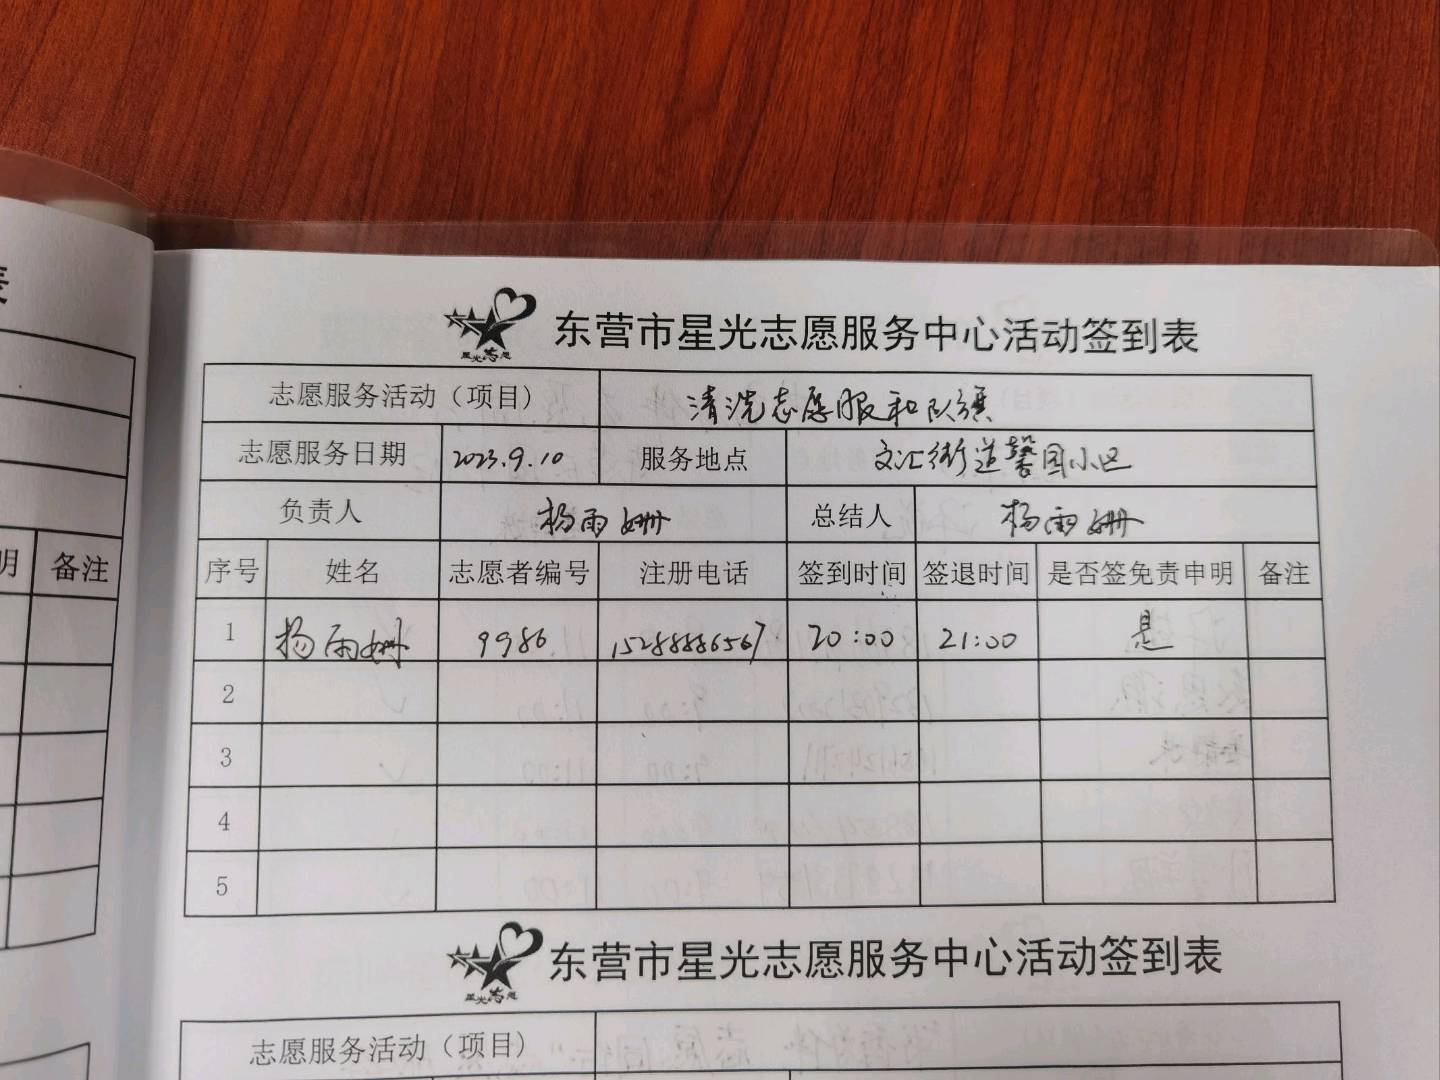 表
明 备注
星光志愿
东营市星光志愿服务中心活动签到表
志愿服务活动（项目） 清洗志愿服和队旗
志愿服务日期 2023.9.10 服务地点 文汇街道馨园小区
负责人 杨雨姗 总结人 杨雨姗
序号 姓名 志愿者编号 注册电话 签到时间 签退时间 是否签免责申明 备注
1 杨雨姗 9986 15288886567 20:00 21:00 是
2
3
4
5
星光志愿
东营市星光志愿服务中心活动签到表
志愿服务活动（项目）